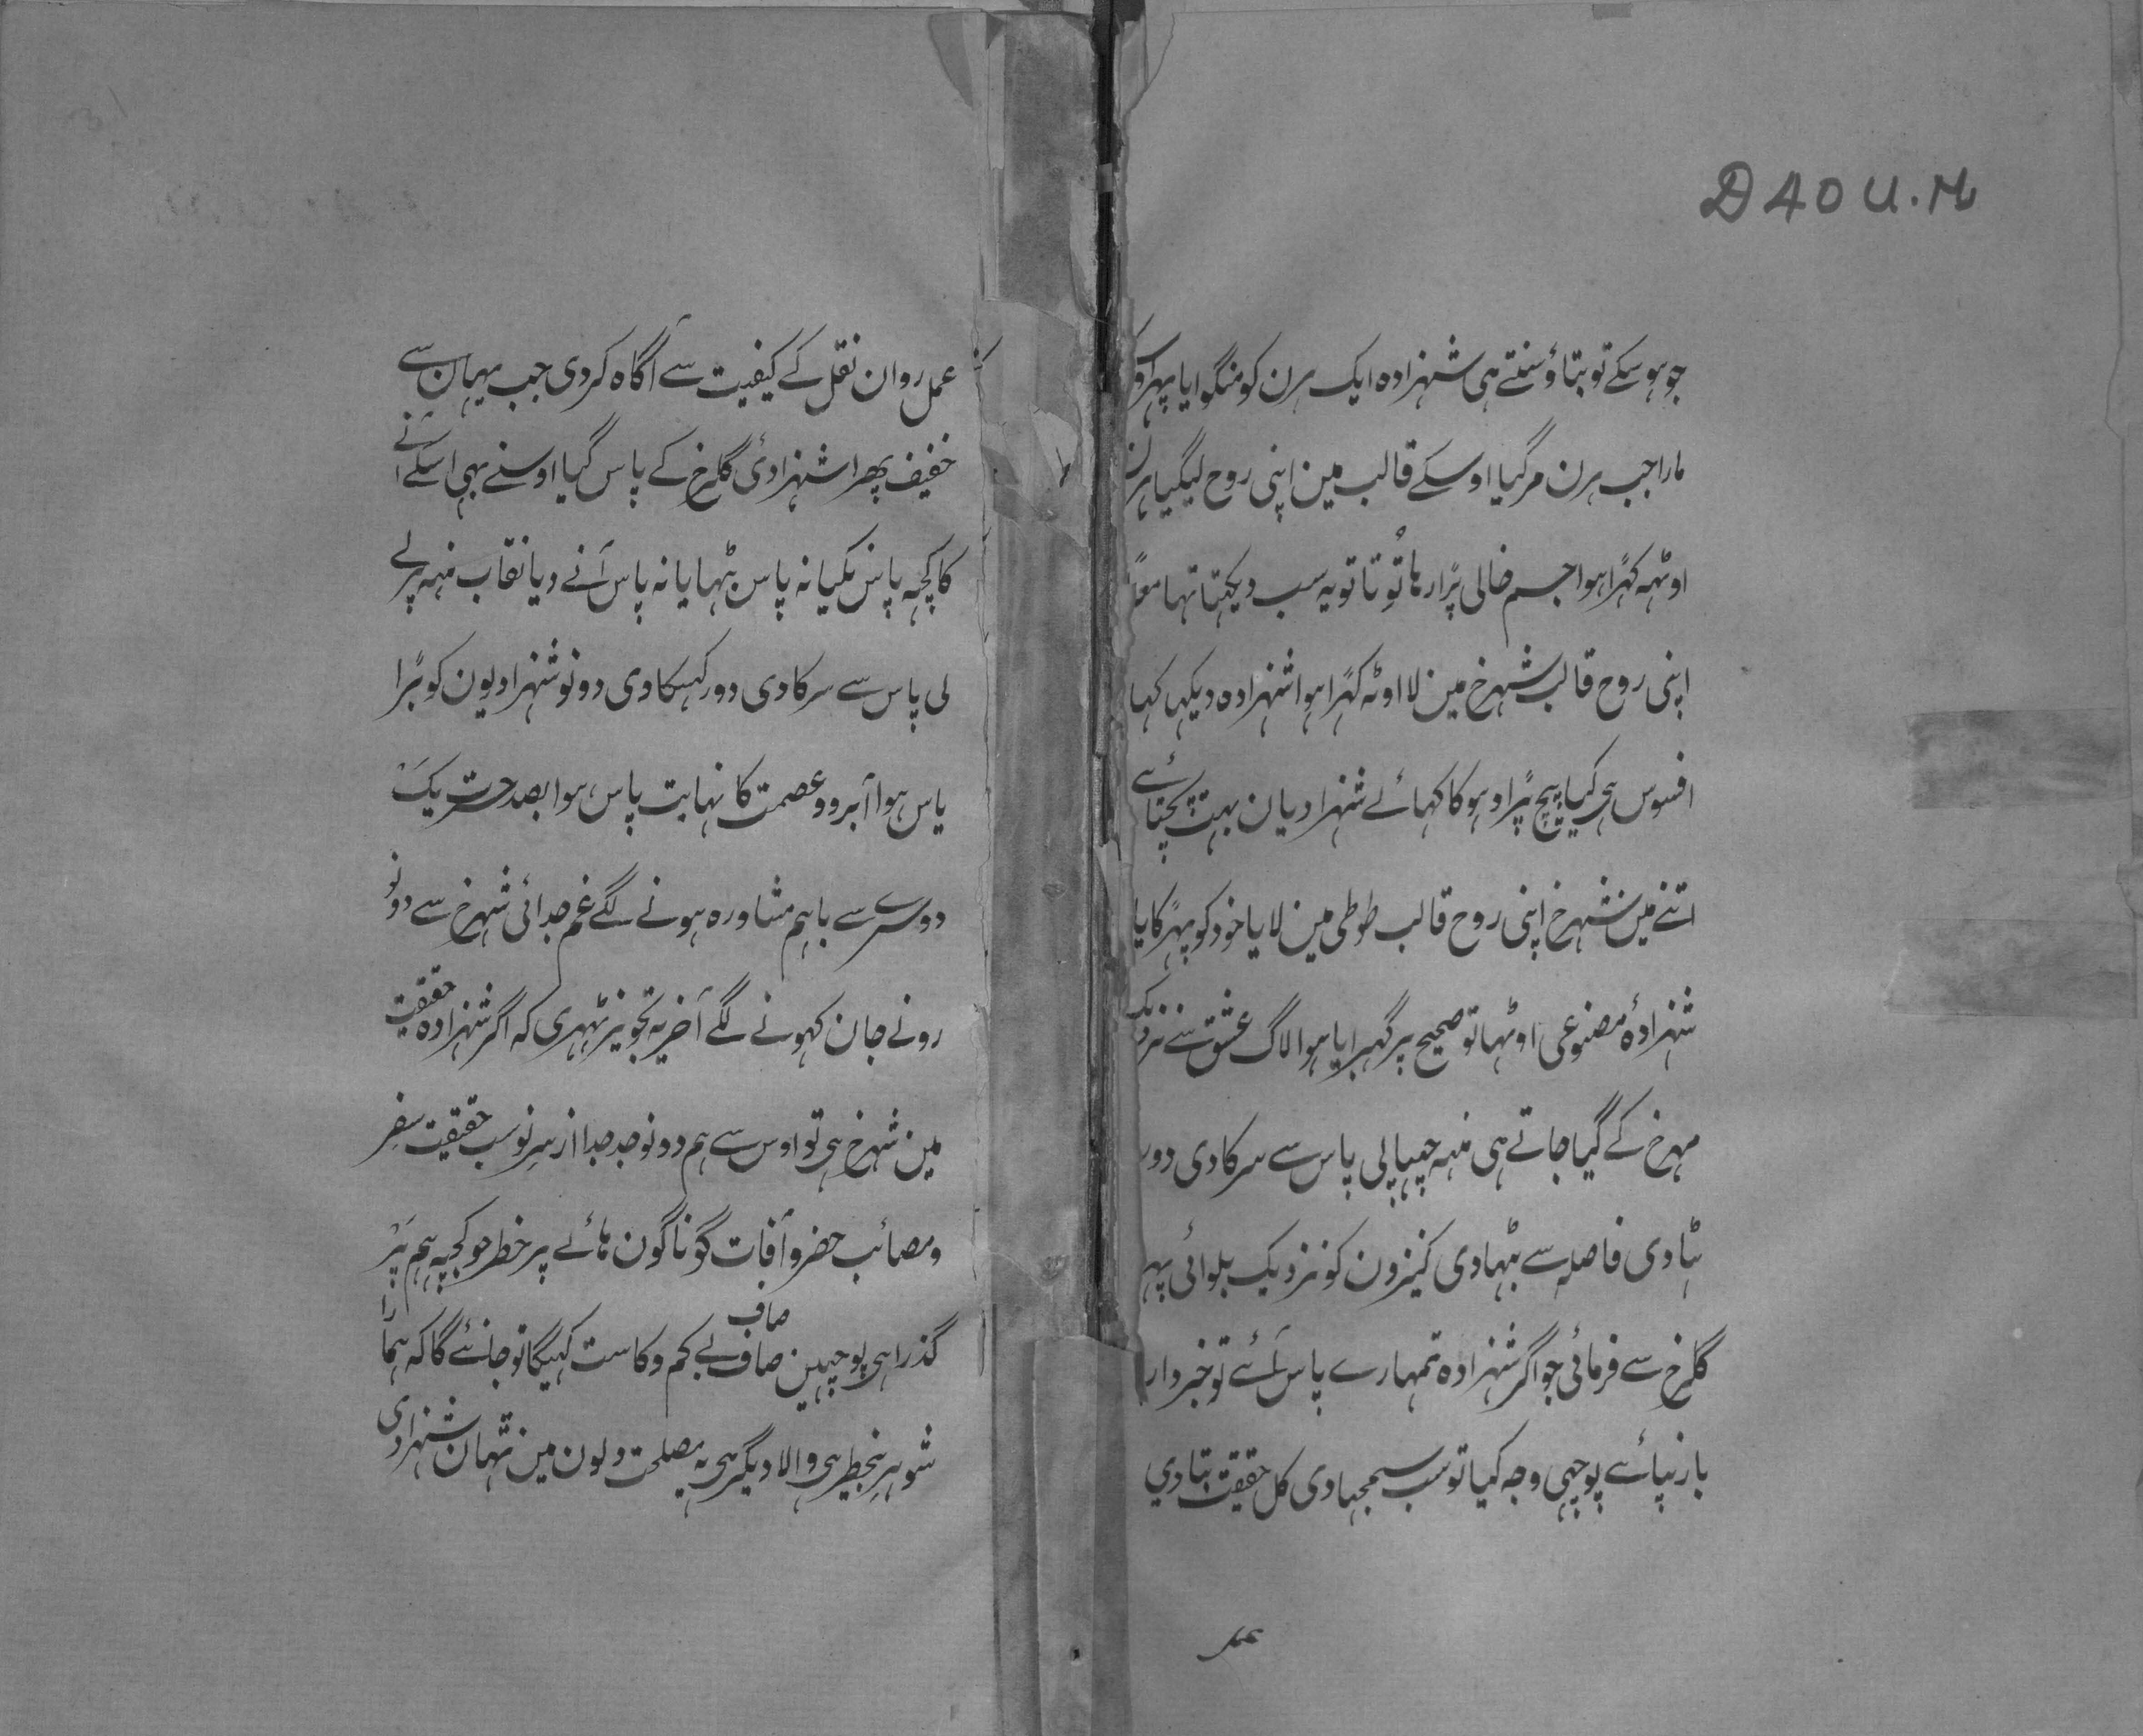 D40 U.M
جو ہو سکے تو بتاؤ سنتے ہی شہزادہ ایک ہرن کو منگوایا پہر اوسکو
مارا جب ہرن مر گیا اوسکے قالب مین اپنی روح لیگیا ہرن
اوٹہہ کہڑا ہوا جسم خالی پڑا رہا تُو تا تو یہ سب دیکہتا تہا معاً
اپنی روح قالب شہرخ مین لا اوٹہ کہڑا ہوا شہزادہ دیکہہ کہا
افسوس ہی کیا پیچ پڑا دہوکا کہائے شہزادیان بہت پچتائے
اتنے مین شہرخ اپنی روح قالب طوطی مین لایا خود کو پہڑکایا
شہزادۂ مصنوعی اوٹہا تو صحیح پر گہبرایا ہوا لاگ عشق سے نزدیک
مہرخ کے گیا جاتے ہی منہ چہپا لی پاس سے سرکا دی دور
ہٹا دی فاصلہ سے بٹہا دی کنیزون کو نزدیک بلوائی پہر
گلرخ سے فرمائی جو اگر شہزادہ تمہارے پاس آئے تو خبردار
بار نپائے پوچہی وجہ کیا تو سب سمجہا دی کل حقیقت بتا دی
عمل
عمل روان نقل کے کیفیت سے آگاہ کر دی جب یہان سے
خفیف پھرا شہزادئ گلرخ کے پاس گیا اوسنے بہی اسکے آنے
کا کچہہ پاس نکیا نہ پاس بٹہایا نہ پاس آنے دیا نقاب منہہ پر لے
لی پاس سے سرکا دی دور کہسکا دی دونو شہزادیون کو بڑا
یاس ہوا آبرو و عصمت کا نہایت پاس ہوا بصد حسرت یک
دوسرے سے باہم مشاورہ ہونے لگے غم جدائی شہرخ سے دونو
رونے جان کہونے لگے آخر یہ تجویز ٹہہری کہ اگر شہزادہ حقیقت
مین شہرخ ہی تو اوس سے ہم دونو جد جدا از سرِ نو سب حقیقت سفر
و مصائب حضر و آفات گوناگون ہائے پر خطر جو کچہہ ہم پر
گذرا ہی پوچہین صاف صاف بے کم و کاست کہیگا تو جانئے گا کہ ہمارا
شوہر بخطر ہی والا دیگر ہی یہ مصلحت دلون مین ٹہان شہزادی